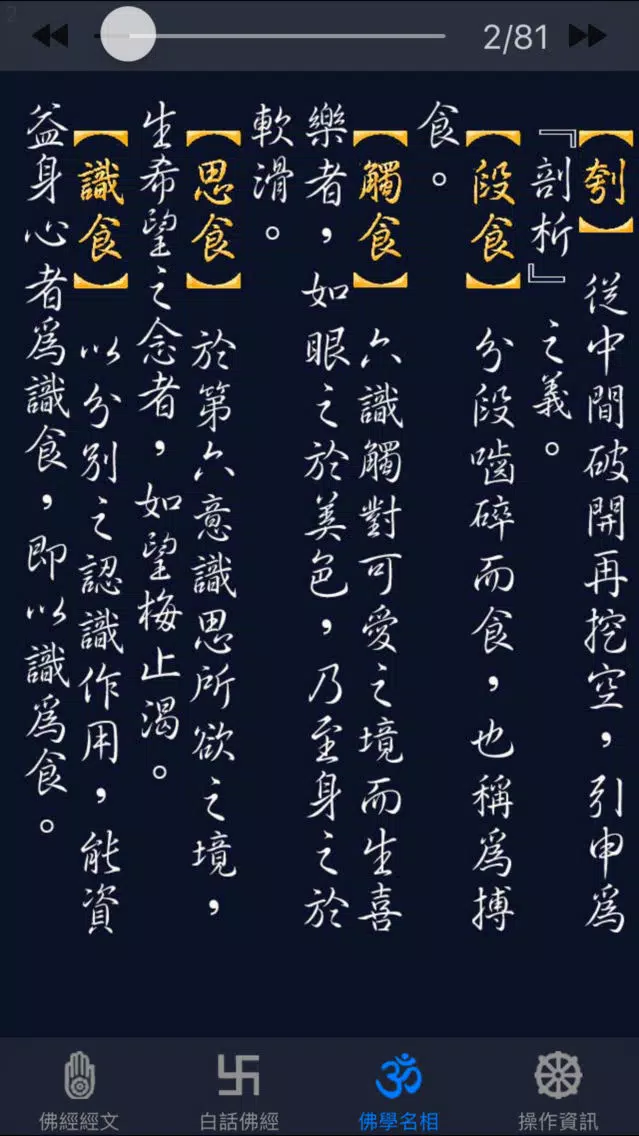 2
2/81
【刳】 從中間破開再挖空，引申為
『剖析』之義。
【段食】 分段嚙碎而食，也稱為摶
食。
【觸食】 六識觸對可愛之境而生喜
樂者，如眼之於美色，乃至身之於
軟滑。
【思食】 於第六意識思所欲之境，
生希望之念者，如望梅止渴。
【識食】 以分別之認識作用，能資
益身心者為識食，即以識為食。
佛經經文
白話佛經
佛學名相
操作資訊